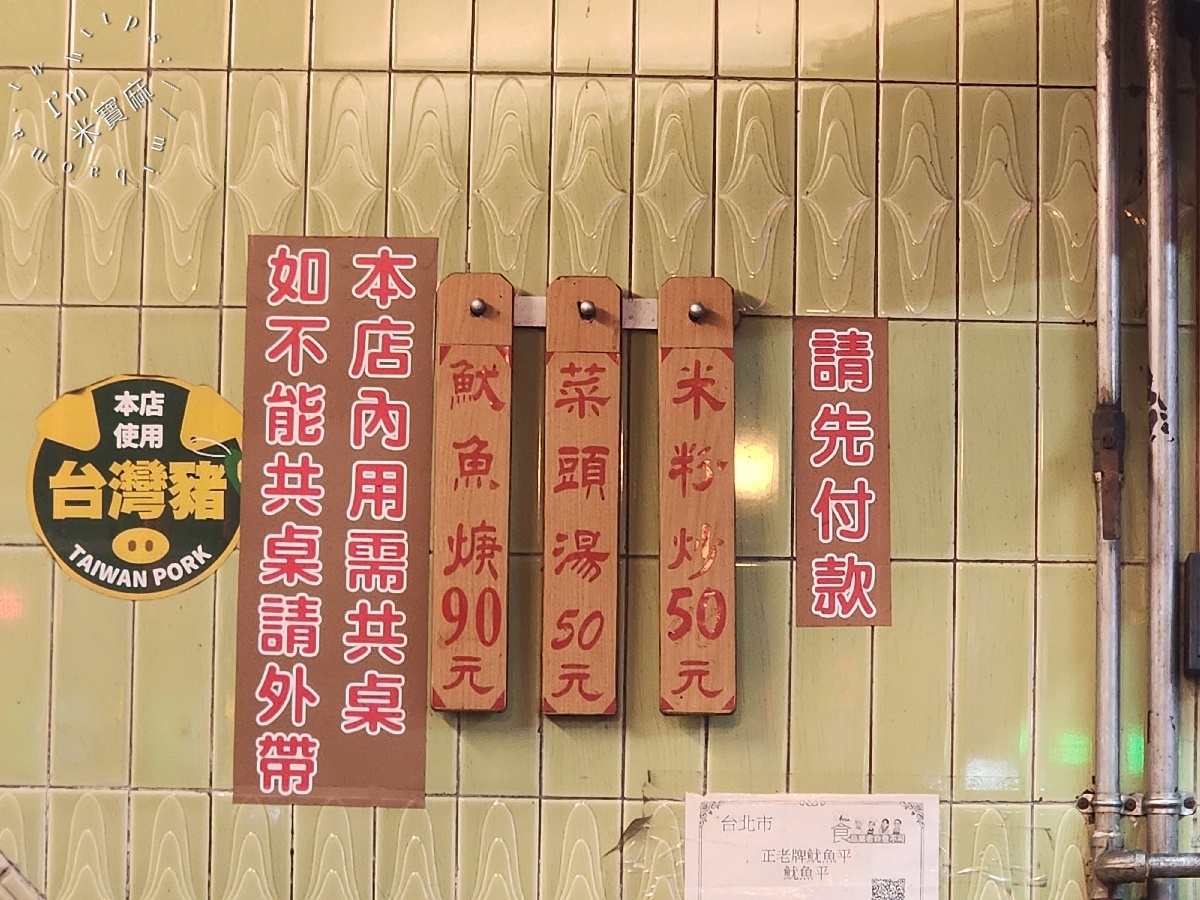 I'm
米寶麻
本店
使用
台灣豬
TAIWAN PORK
本店內用需共桌
如不能共桌請外帶
魷魚焿90元
菜頭湯50元
米粉炒50元
請先付款
台北市
食
正老牌魷魚平
魷魚平